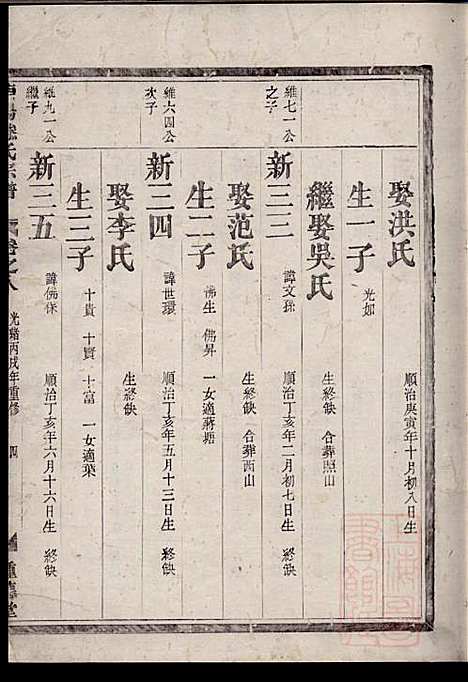 娶洪氏 順治庚寅年十月初八日生
生一子 光如
繼娶吳氏 生終缺 合葬照山
維七一公之子
新三三 諱文孫 順治丁亥年二月初七日生 終缺
娶范氏 生終缺 合葬西山
生二子 佛生 佛昇 一女適蔣塘
維六四公次子
新三四 諱世環 順治丁亥年五月十三日生 終缺
娶李氏 生終缺
生三子 十貴 十賢 十富 一女適葉
維九一公繼子
新三五 諱佛保 順治丁亥年六月十六日生 終缺
氏宗譜 卷之八 光緒丙戌年重修 四